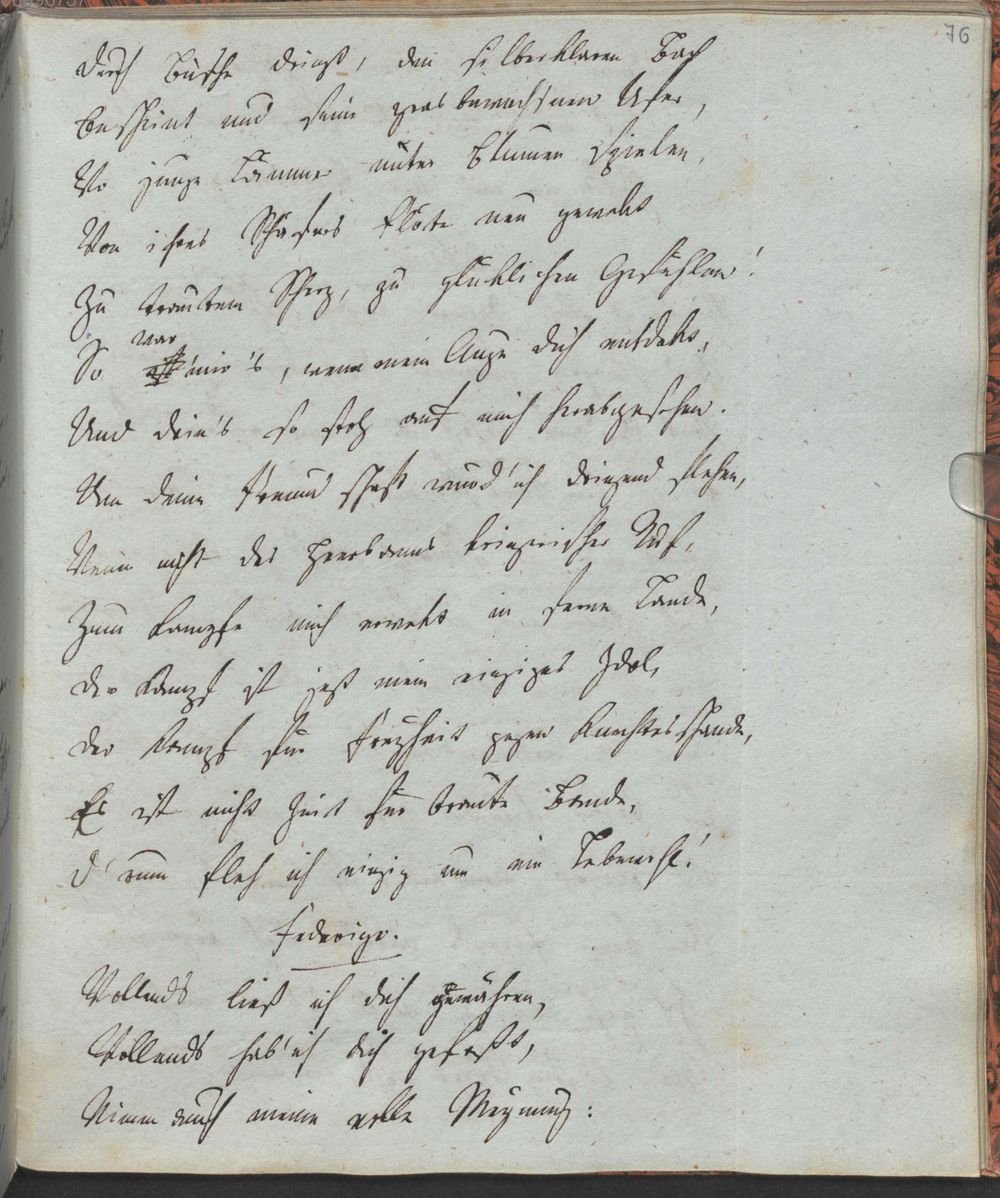 76
durch Büsche dringt, den silberklaren Bach
bescheint und seine grasbewachsnen Ufer,
Wo junge Lämmer unter Blumen spielen,
Von ihres Schäfers Flöte neu gewekt
Zu trautem Scherz, zu glüklichen Gefühlen!
So war mir's, wenn mein Auge dich entdekt,
Und dein's so stolz auf mich herabgesehen.
Um deine Freundschaft würd' ich dringend flehen,
Wenn nicht des Heerbanns kriegrischer Ruf,
Zum Kampfe mich erwekt in ferne Lande,
der Kampf ist jezt mein einziges Idol,
der Kampf für Freyheit gegen Knechtesschande,
Es ist nicht Zeit für traute Bande,
D'rum fleh ich einzig um ein Lebewohl!
Federigo.
Vollends ließ ich dich gewähren,
Vollends hab' ich dich gefaßt,
Nimm auch meine volle Meynung: